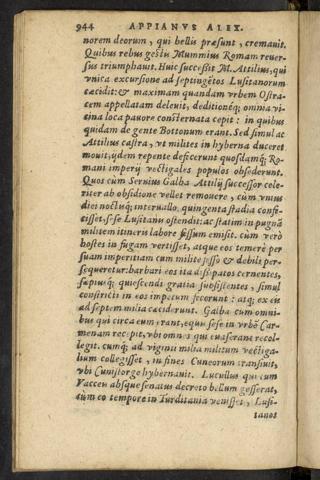 944 APPIANVS ALEX.
norem deorum, qui bellis præsunt, cremauit.
Quibus rebus gestis Mummius Romam reuer-
sus triumphauit. Huic successit M. Attilius, qui
vnica excursione ad septingẽtos Lusitanorum
cæcidit: & maximam quandam vrbem Ostra-
cem appellatam deleuit, deditionéq; omnia vi-
cina loca pauore consternata cepit: in quibus
quidam de gente Bottonum erant. Sed simul ac
Attilius castra, vt milites in hyberna duceret
mouit, ijdem repente defecerunt quosdamq; Ro-
mani imperij vectigales populos obsederunt.
Quos cùm Seruius Galba Attilij successor cele-
riter ab obsidione vellet remouere, cùm vnius
diei noctisq; interuallo, quingenta stadia confe-
cisset, se se Lusitanis ostendit: ac statim in pugnã
militem itineris labore fessum emisit. cùm verò
hostes in fugam vertisset, atque eos temerè per
suam imperitiam cum milite fesso & debili per-
sequeretur: barbari eos ita dissipatos cernentes,
sæpiusq; quiescendi gratia subsistentes, simul
constricti in eos impetum fecerunt: atq; ex eis
ad septem milia cæciderunt. Galba cum omni-
bus qui circa eum erant, equis sese in vrbẽ Car-
menam recepit, vbi omnes qui euaserant recol-
legit. cumq; ad viginti milia militum vectiga-
lium collegisset, in fines Cuneorum transiuit,
vbi Cunistorge hybernauit. Lucullus qui cum
Vaccæis absque senatus decreto bellum gesserat,
cùm eo tempore in Turditania venisset, Lusi-
tanos